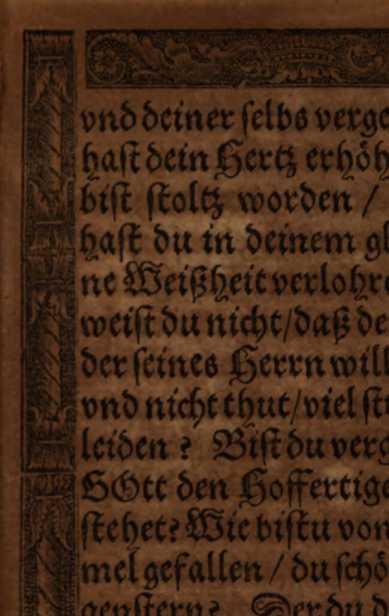 vnd deiner selbs verge
hast dein Hertz erhöh
bist stoltz worden /
hast du in deinem gl
ne Weißheit verlohr
weist du nicht/daß de
der seines Herrn will
vnd nicht thut/viel str
leiden ? Bist du verg
GOtt den Hoffertige
stehet? Wie bistu von
mel gefallen / du schö
genstern? Der du d